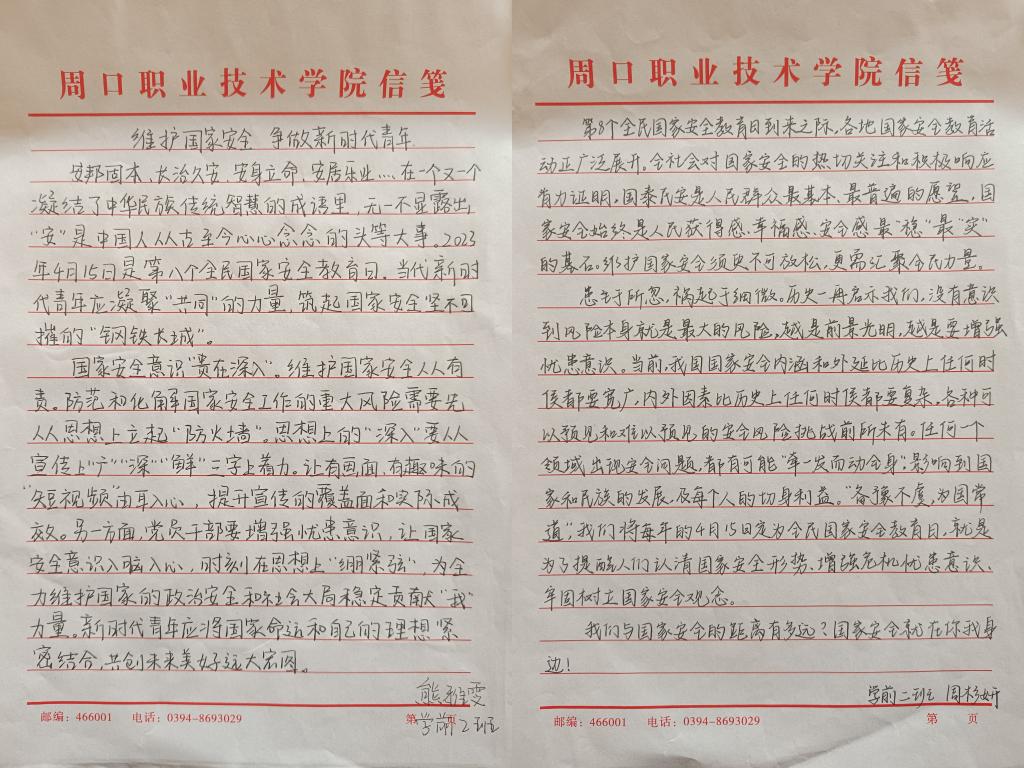 周口职业技术学院信笺
维护国家安全 争做新时代青年
安邦固本、长治久安、安身立命、安居乐业……在一个又一个
凝结了中华民族传统智慧的成语里,无一不显露出
“安”是中国人从古至今心心念念的头等大事。2023
年4月15日是第八个全民国家安全教育日,当代新时
代青年应凝聚“共同”的力量,筑起国家安全坚不可
摧的“钢铁长城”。
国家安全意识“贵在深入”。维护国家安全人人有
责。防范和化解国家安全工作的重大风险需要先
从思想上立起“防火墙”。思想上的“深入”要从
宣传上“广”“深”“鲜”三字上着力。让有画面,有趣味的
“短视频”由耳入心,提升宣传的覆盖面和实际成
效。另一方面,党员干部要增强忧患意识,让国家
安全意识入脑入心,时刻在思想上“绷紧弦”,为全
力维护国家的政治安全和社会大局稳定贡献“我”
力量。新时代青年应将国家命运和自己的理想紧
密结合,共创未来美好远大宏图。
熊雅雯
学前二班
邮编:466001 电话:0394-8693029 第 页
周口职业技术学院信笺
第8个全民国家安全教育日到来之际,各地国家安全教育活
动正广泛展开。全社会对国家安全的热切关注和积极响应
有力证明。国泰民安是人民群众最基本、最普遍的愿望,国
家安全始终是人民获得感、幸福感、安全感最“稳”最“实”
的基石。维护国家安全须臾不可放松,更需汇聚全民力量。
患生于所忽,祸起于细微。历史一再启示我们,没有意识
到风险本身就是最大的风险,越是前景光明,越是要增强
忧患意识。当前,我国国家安全内涵和外延比历史上任何时
候都要宽广,内外因素比历史上任何时候都要复杂,各种可
以预见和难以预见的安全风险挑战前所未有。任何一个
领域出现安全问题,都有可能“牵一发而动全身”;影响到国
家和民族的发展及每个人的切身利益。“备豫不虞,为国常
道”,我们将每年的4月15日定为全民国家安全教育日,就是
为了提醒人们认清国家安全形势、增强危机忧患意识、
牢固树立国家安全观念。
我们与国家安全的距离有多远?国家安全就在你我身
边!
学前二班 周杉妍
邮编:466001 电话:0394-8693029 第 页